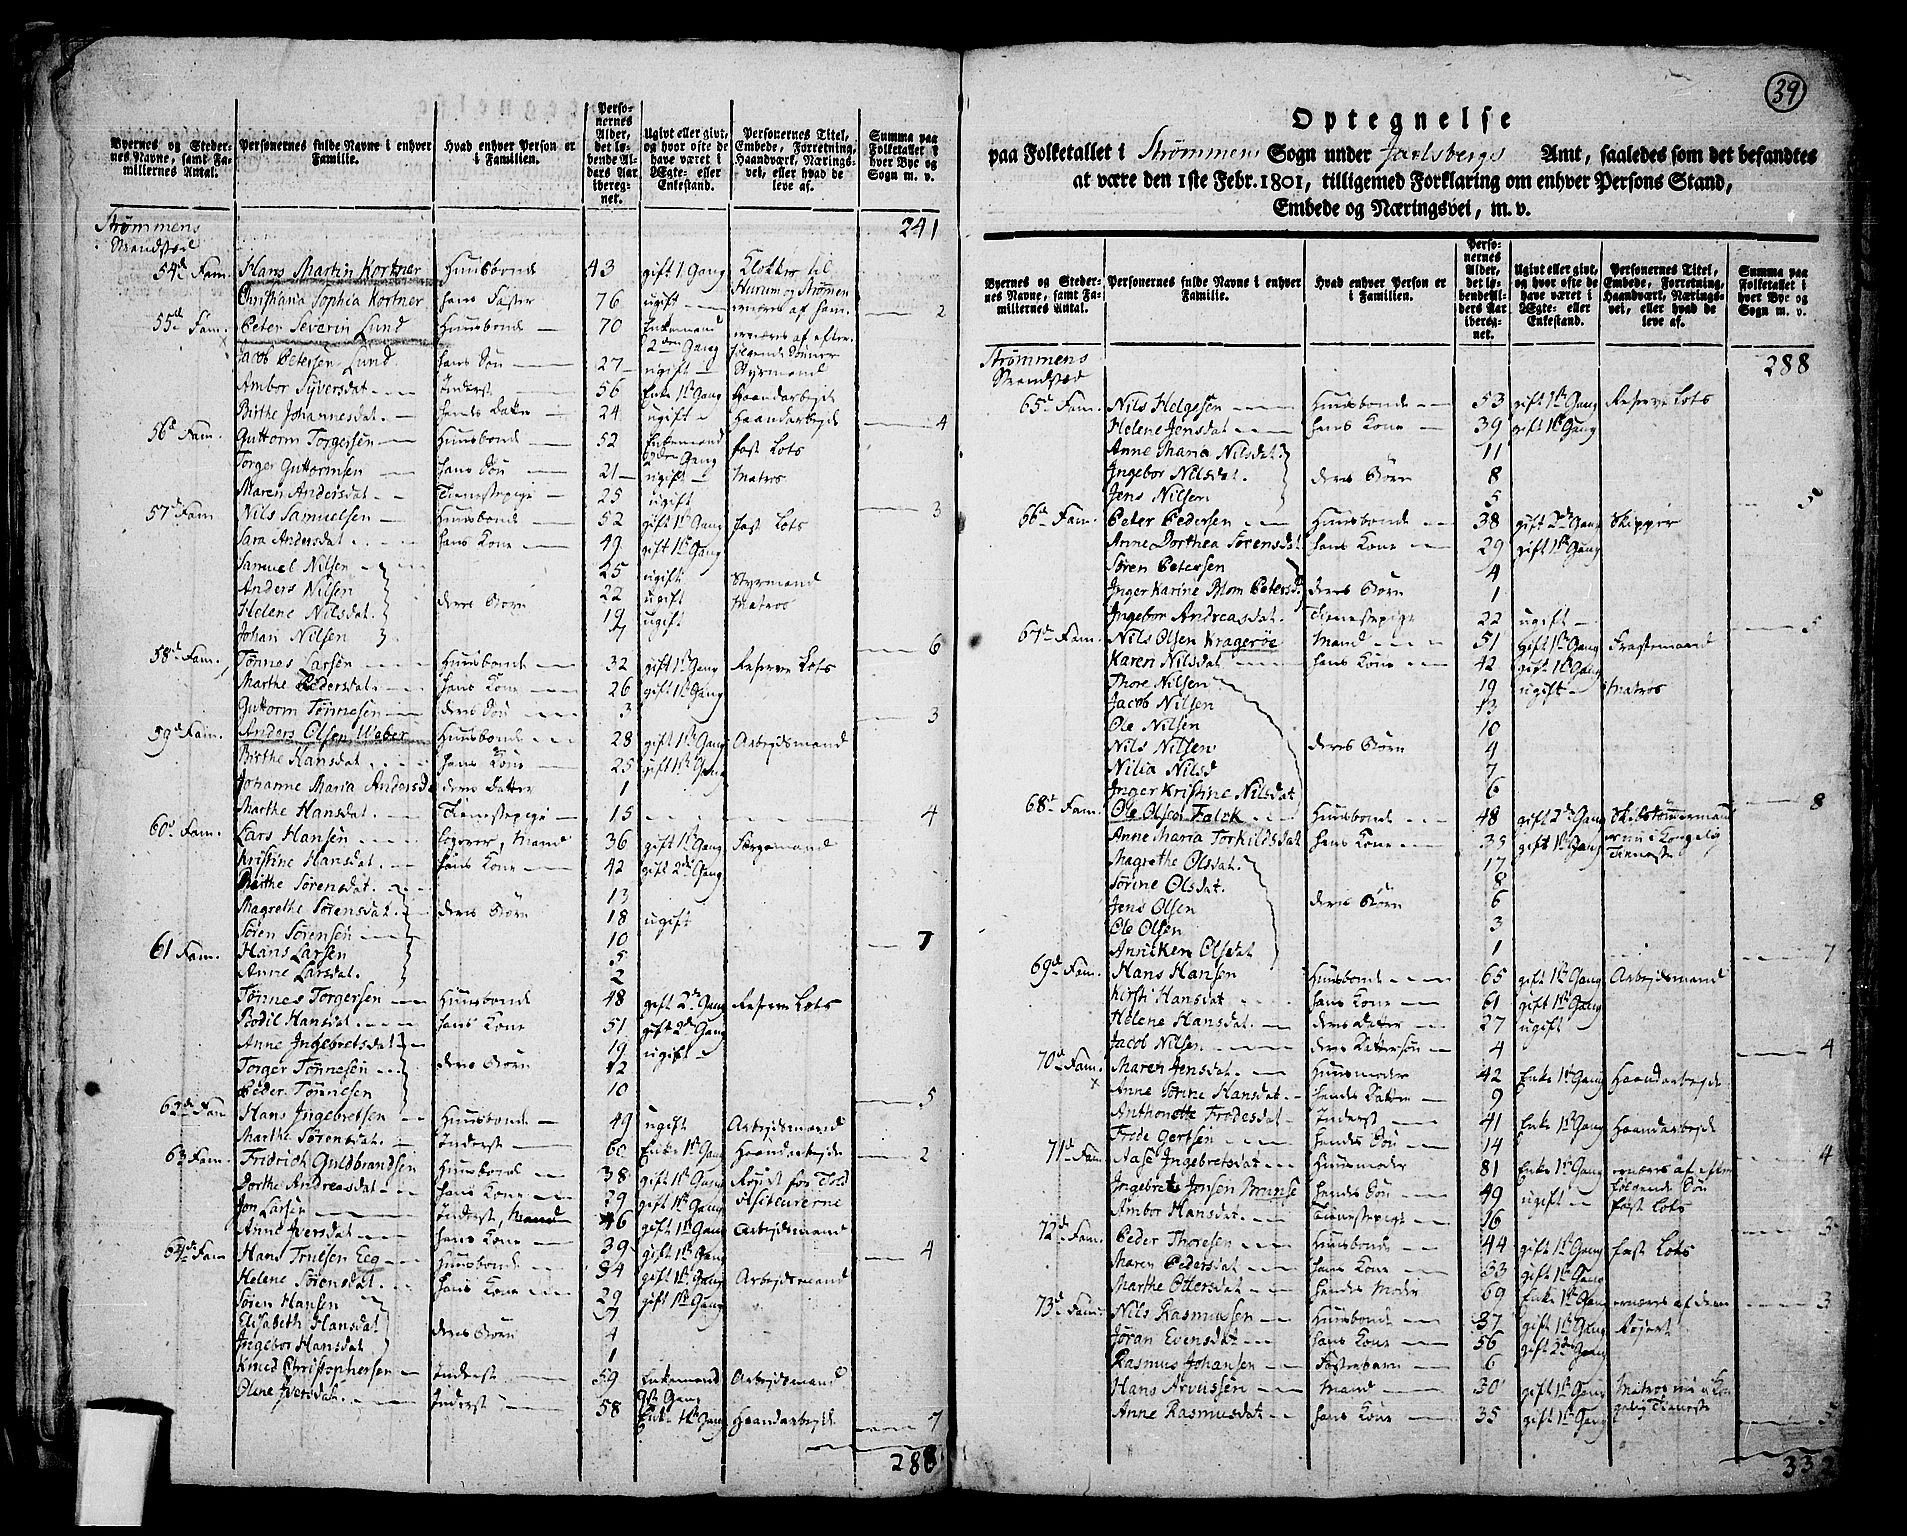 Byernes og Stedernes Navne, samt Familliernes Antal.
Personernes fulde Navne i enhver Familie.
Hvad enhver Person er i Familien.
Personernes Alder, det løbende Alders Aar iberegnet.
Ugivt eller givt, og hvor ofte de have været i Ægte- eller Enkestand.
Personernes Titel, Embede, Forretning, Haandværk, Næringsvei, eller hvad de leve af.
Summa paa Folketallet i hver Bye og Sogn m. v.
Strømmens Strandsted 241
54de Fam. Hans Martin Kortner Huusbonde 43 gift 1 Gang Klokker til Hurum og Strømen
Christiania Sophia Kortner hans Faster 76 ugift ernæres af ham. 2
55de Fam. Peter Severin Lund Huusbonde 70 Enkemand 2den Gang ernæres af efterfølgende Sønner
Jacob Petersen Lund hans Søn 27 ugift Styrmand
Ambor Syversdat Inderst 56 Enke 1ste Gang Haandarbejde
Birthe Johannesdat. hendes Datter 24 ugift Haandarbejde 4
56de Fam. Guttorm Torgersen Huusbonde 52 Enkemand 2den Gang fast Lots
Torger Guttormsen hans Søn 21 ugift Matros
Maren Andersdat Tienestepige 25 ugift 3
57de Fam Nils Samuelsen Huusbonde 52 gift 1ste Gang fast Lots
Sara Andersdat hans Kone 49 gift 1ste Gang
Samuel Nilsen 25 ugift Styrmand
Anders Nilsen deres Børn 22 ugift Matros
Helene Nilsdat. 19 ugift
Johan Nilsen 7 6
58de Fam. Tønnes Larsen Huusbonde 32 gift 1ste Gang Reserve Lots
Marthe Pedersdat. hans Kone 26 gift 1ste Gang
Guttorm Tønnesen deres Søn 3 3
59de Fam. Anders Olsen Weber Huusbonde 28 gift 1ste Gang Arbejdsmand
Birthe Hansdat hans Kone 25 gift 1ste Gang
Johanne Maria Andersd deres Datter 1
Marthe Hansdat Tienestepige 15 4
60de Fam. Lars Hansen Logerer, Mand 36 gift 1ste Gang Færgemand
Kristine Hansdat hans Kone 42 gift 2den Gang
Birthe Sørensdat. 13
Magrethe Sørensdat. deres Børn 18 ugift
Søren Sørensen 10
61 Fam. Hans Larsen 5 7
Anne Larsdat. 2
Tønnes Torgersen Huusbonde 48 gift 2den Gang Reserve Lots
Bodil Hansdat. hans Kone 51 gift 2de Gang
Anne Ingebretsdat 19 ugift
Torger Tønnesen deres Børn 12
Peder Tønnesen 10 5
62de Fam Hans Ingebretsen Huusbonde 49 ugift Arbejdsmand
Marthe Sørensdat. Inderst 60 Enke 1ste Gang Haandarbejde 2
63 Fam. Fridrich Guldbrandsen Huusbonde 38 gift 1ste Gang
Dorthe Andreasdat hans Kone 29 gift 1ste Gang
Jon Larsen Inderst, Mand 46 gift 1ste Gang Arbejdsmand
Anne Iversdat hans Kone 39 gift 1ste Gang 4
64de Fam Hans Truesen Eeg Huusbonde 34 gift 1ste Gang Arbejdsmand
Helene Sørensdat. hans Kone 29 gift 1ste Gang
Søren Hansen 7
Elisabeth Hansdat deres Børn 4
Ingebor Hansdat 1
Knud Christophersen Inderst 59 Enkemand 1st Gang Arbejdsmand
Oline Iversdat. Inderst 58 Enke 1ste Gang Haandarbejde 7
288
39
Optegnelse
paa Folketallet i Strømmens Sogn under Jarlsbergs Amt, saaledes som det befandtes
at være den 1ste Febr. 1801, tilligemed Forklaring om enhver Persons Stand,
Embede og Næringsvei, m. v.
Byernes og Stedernes Navne, samt Familliernes Antal.
Personernes fulde Navne i enhver Familie.
Hvad enhver Person er i Familien.
Personernes Alder, det løbende Alders Aar iberegnet.
Ugivt eller givt, og hvor ofte de have været i Ægte- eller Enkestand.
Personernes Titel, Embede, Forretning, Haandværk, Næringsvei, eller hvad de leve af.
Summa paa Folketallet i hver Bye og Sogn m. v.
Strømmens Strandsted 288
65de Fam. Nils Helgesen Huusbonde 53 gift 1ste Gang Reserve Lots
Helene Jensdat hans Kone 39 gift 1ste Gang
Anne Maria Nilsdat. 11
Ingebor Nilsdat. deres Børn 8
Jens Nilsen 5 5
66de Fam. Peter Pedersen Huusbonde 38 gift 2de Gang Skipper
Anne Dorthea Sørensdat hans Kone 29 gift 1ste Gang
Søren Petersen 4
Inger Karine Blom Petersd. deres Børn 1
Ingebor Andreasdat. Tienestepige 22 ugift 5
67de Fam. Nils Olsen Kragerøe Mand 51 gift 1ste Gang Fragtemand
Karen Nilsdat hans Kone 42 gift 1ste Gang
Thore Nilsen 19 ugift Matros
Jacob Nilsen 13
Ole Nilsen 10
Nils Nilsen deres Børn 9
Nilia Nilsd 7
Inger Kristine Nilsdat 6 8
68de Fam. Ole Olsen Falck Huusbonde 48 gift 2de Gang Skibstømmermand nu i Kongelig Tieneste
Anne Maria Torkildsdat hans Kone 35 gift 1ste Gang
Magrethe Olsdat. 17
Sørine Olsdat. 8
Jens Olsen deres Børn 6
Ole Olsen 3
Anniken Olsdat 1 7
69de Fam. Hans Hansen Huusbonde 65 gift 1ste Gang Arbejdsmand
Kirsti Hansdat hans Kone 61 gift 1ste Gang
Helene Hansdat. deres Datter 27 ugift
Jacob Nilsen deres Dattersøn 4 4
70de Fam. Maren Jensdat. Huusmoder 42 Enke 1ste Gang Haandarbejde
Anne Sørine Hansdat hendes Datter 9
Anthonette Frodesdat Inderst 41 Enke 1ste Gang Haandarbejde
Frode Gertsen hendes Søn 14 4
71de Fam Aase Ingebretsdat Huusmoder 81 Enke 1ste Gang ernæres af efterfølgende Søn
Ingebret Jonsen hendes Søn 49 ugift fast Lots
Ambor Hansdat. Tienestepige 16 3
72de Fam. Peder Thoresen Huusbonde 44 gift 1ste Gang fast Lots
Maren Pedersdat hans Kone 33 gift 1ste Gang
Marthe Ottersdat hendes Moder 69 Enke 1ste Gang ernæres af dem 3
73de Fam. Nils Rasmussen Huusbonde 37 gift 1ste Gang
Jøran Evensdat hans Kone 56 gift 2den Gang
Rasmus Johansen Fosterbarn 6
Hans Arveissen Mand 30 gift 1ste Gang Matros nu i Kongelig Tieneste
Anne Rasmusdat hans Kone 35 gift 1ste Gang 5
332